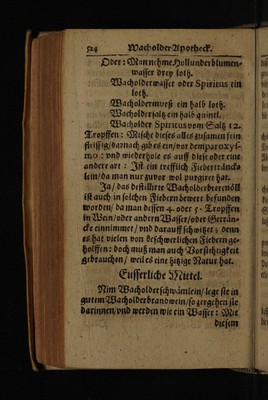 524 Wacholder-Apotheck.
Oder: Man nehme Hollunderblumen-
wasser drey loth.
Wacholderwasser oder Spiritus ein
loth.
Wacholdermueß ein halb loth.
Wacholdersaltz ein halb quintl.
Wacholder Spiritus vom Saltz 12.
Tropffen: Mische dieses alles zusamen fein
fleissig/ darnach gib es ein/ vor dem paroxys-
mo: und wiederhole es auff diese oder eine
andere art: Ist ein trefflich Fiebertränck-
lein/ da man nur zuvor wol purgiret hat.
Ja/ das destillirte Wacholderbeerenöll
ist auch in solchen Fiebern bewert befunden
worden/ da man dessen 4. oder 5. Tropffen
in Wein/ oder andern Wasser/ oder Geträn-
cke einnimmet/ und darauff schwitzet; denn
es hat vielen von beschwerlichen Fiebern ge-
holffen: doch muß man auch Vorsichtigkeit
gebrauchen/ weil es eine hitzige Natur hat.
Eusserliche Mittel.
Nim Wacholderschwämlein/ lege sie in
gutem Wacholderbrandwein/ so zergehen sie
darinnen/ und werden wie ein Wasser: Mit
diesem